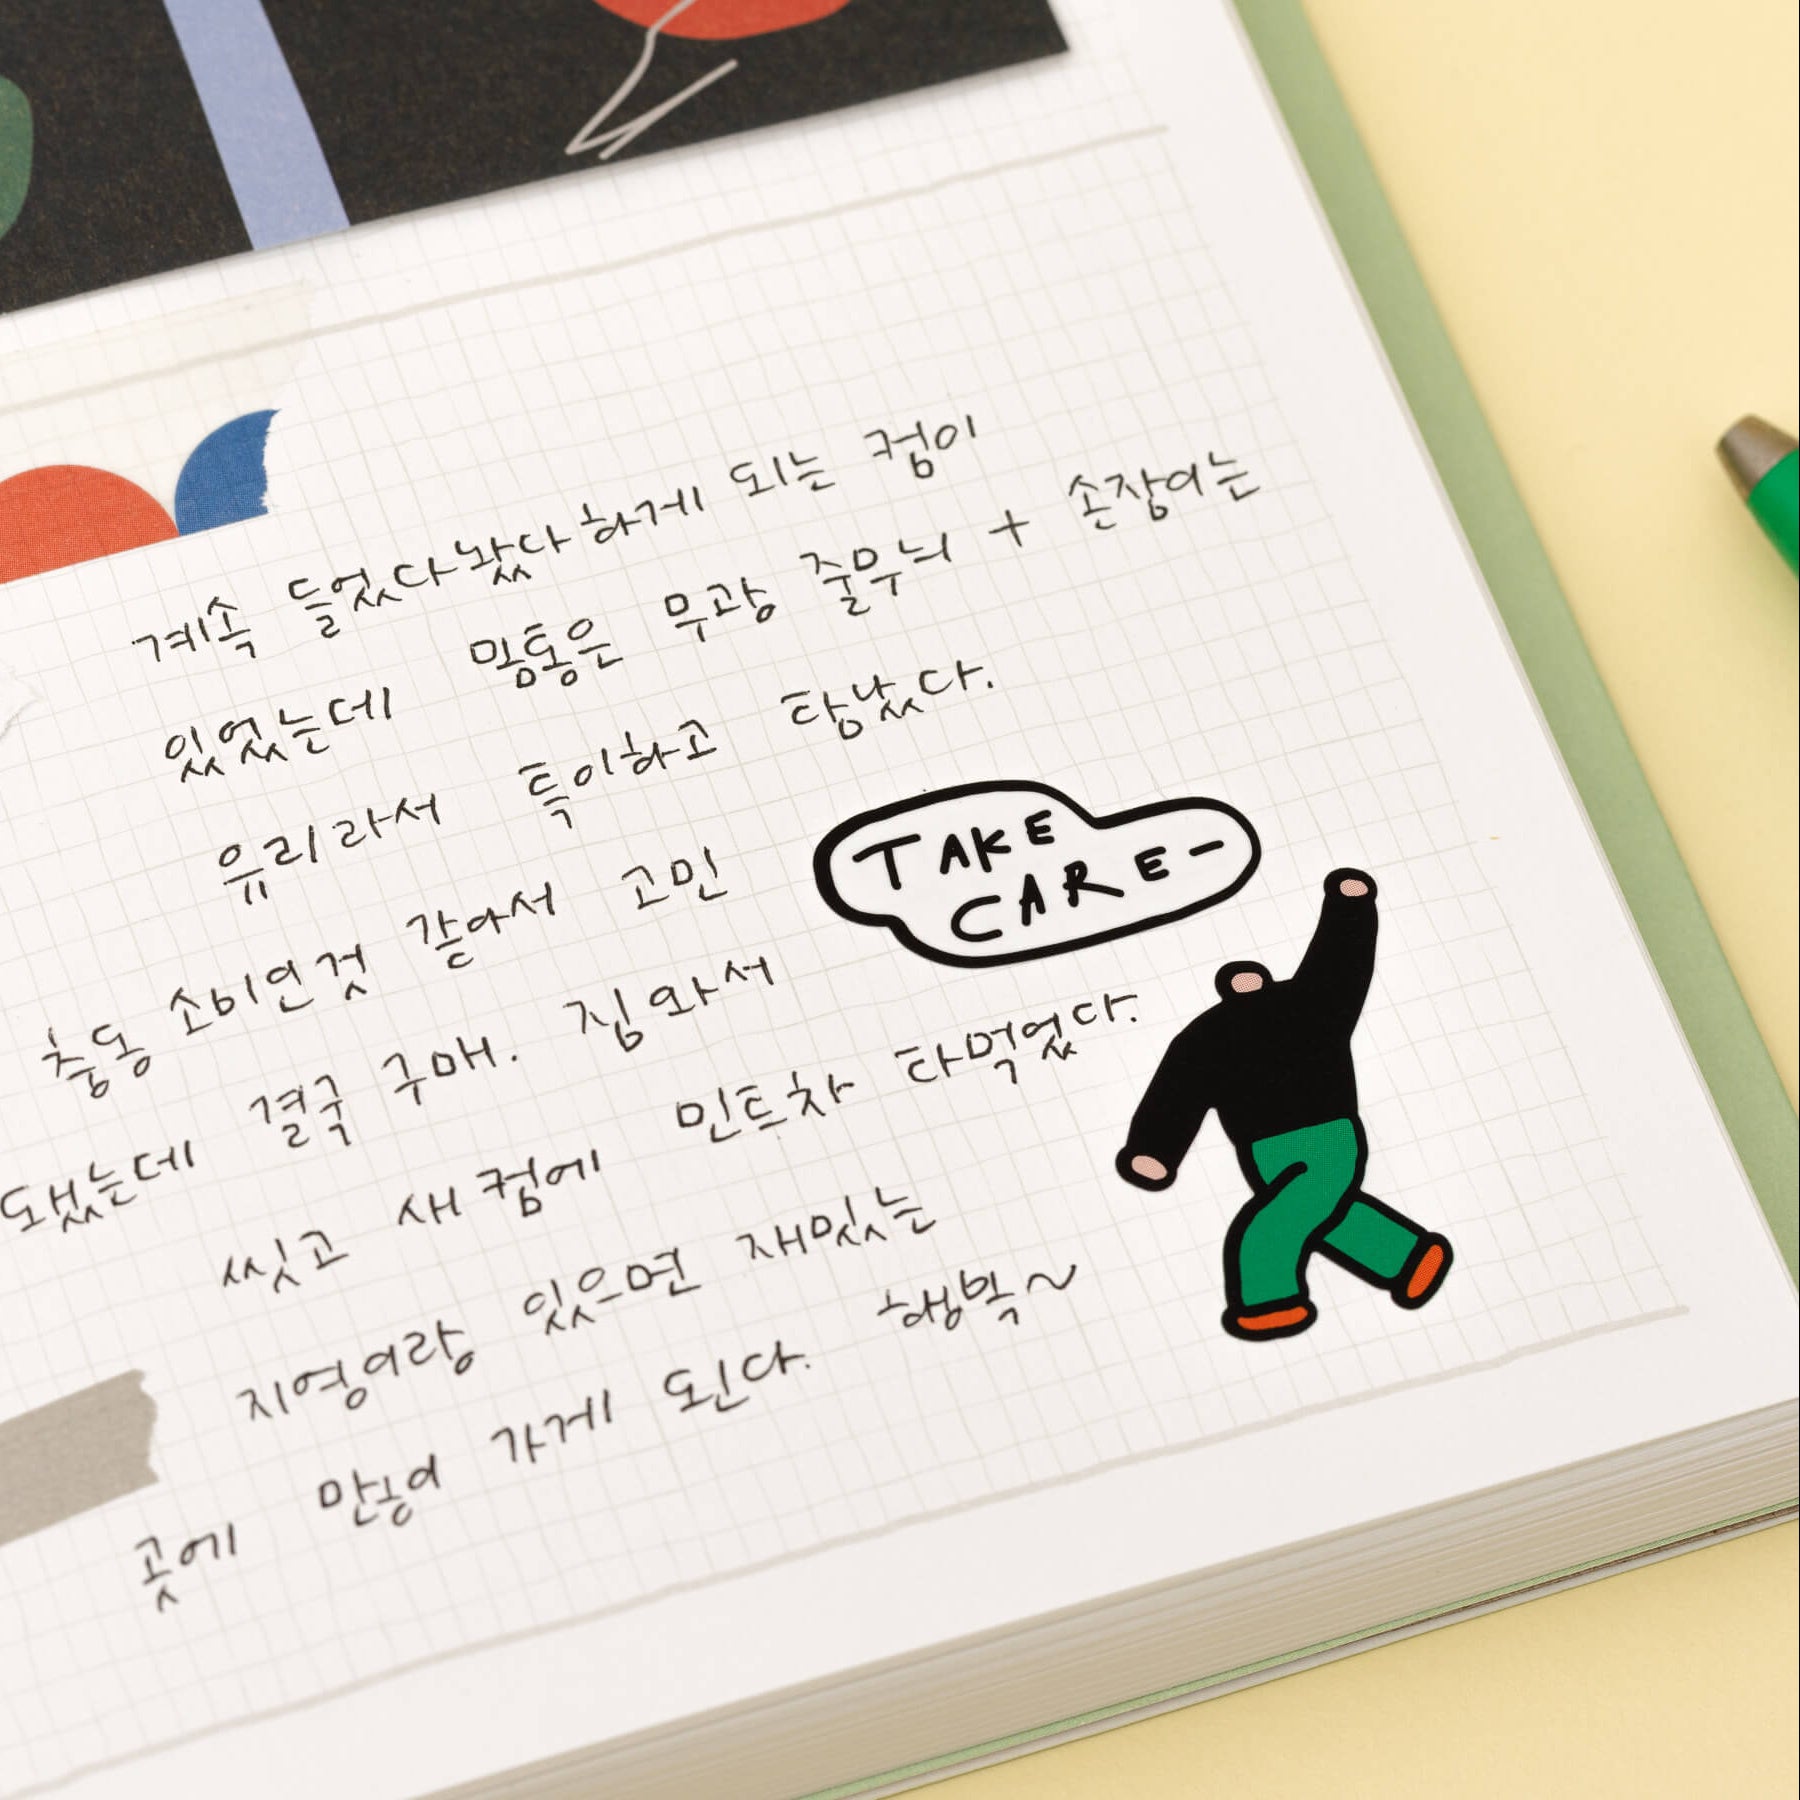 계속 들었다놨다하게 되는 컵이
있었는데 몸통은 무광 줄무늬 + 손잡이는
유리라서 특이하고 탐났다.
충동 소비인것 같아서 고민
됐는데 결국 구매. 집와서
씻고 새 컵에 민트차 타먹었다.
지영이랑 있으면 재밌는
곳에 많이 가게 된다. 행복~
TAKE
CARE-